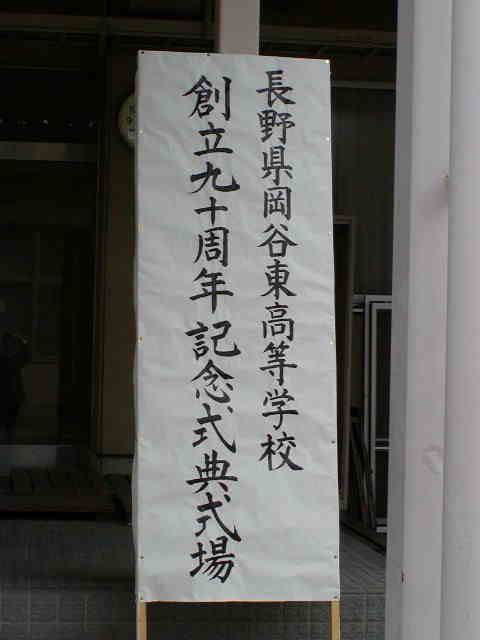 長野県岡谷東高等学校
創立九十周年記念式典式場